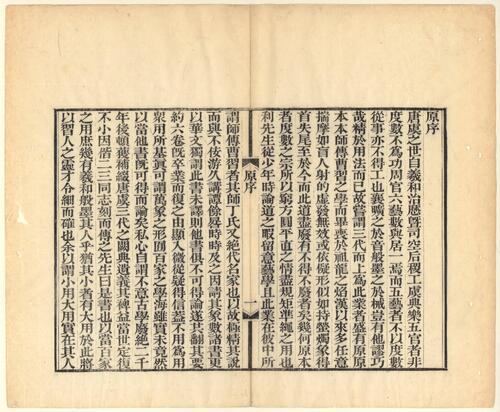 原序
唐虞之世自羲和治曆暨司空后稷工虞典樂五官者非
度數不為功周官六藝數與居一焉而五藝者不以度數
從事亦不得工也襄曠之於音般墨之於械豈有他謬巧
哉精於用法而已故嘗謂三代而上為此業者盛有原原
本本師傅曹習之學而畢喪於祖龍之焰漢以來多任意
揣摩如盲人射的虛發無效或依儗形似如持螢燭象得
首失尾至於今而此道盡廢有不得不廢者矣幾何原本
者度數之宗所以窮方圓平直之情盡規矩準繩之用也
利先生從少年時論道之暇留意藝學且此業在彼中所
原序
一
謂師傅曹習者其師丁氏又絕代名家也以故極精其說
而與不佞游久講譚餘晷時時及之因請其象數諸書更
以華文獨謂此書未譯則他書俱不可得論遂共翻其要
約六卷既卒業而復之由顯入微從疑得信蓋不用為用
眾用所基真可謂萬象之形囿百家之學海雖實未竟然
以當他書既可得而論矣私心自謂不意古學廢絕二千
年後頓獲補綴唐虞三代之闕典遺義其裨益當世定復
不小因偕二三同志刻而傳之先生曰是書也以當百家
之用庶幾有羲和般墨其人乎猶其小者有大用於此將
以習人之靈才令細而確也余以謂小用大用實在其人